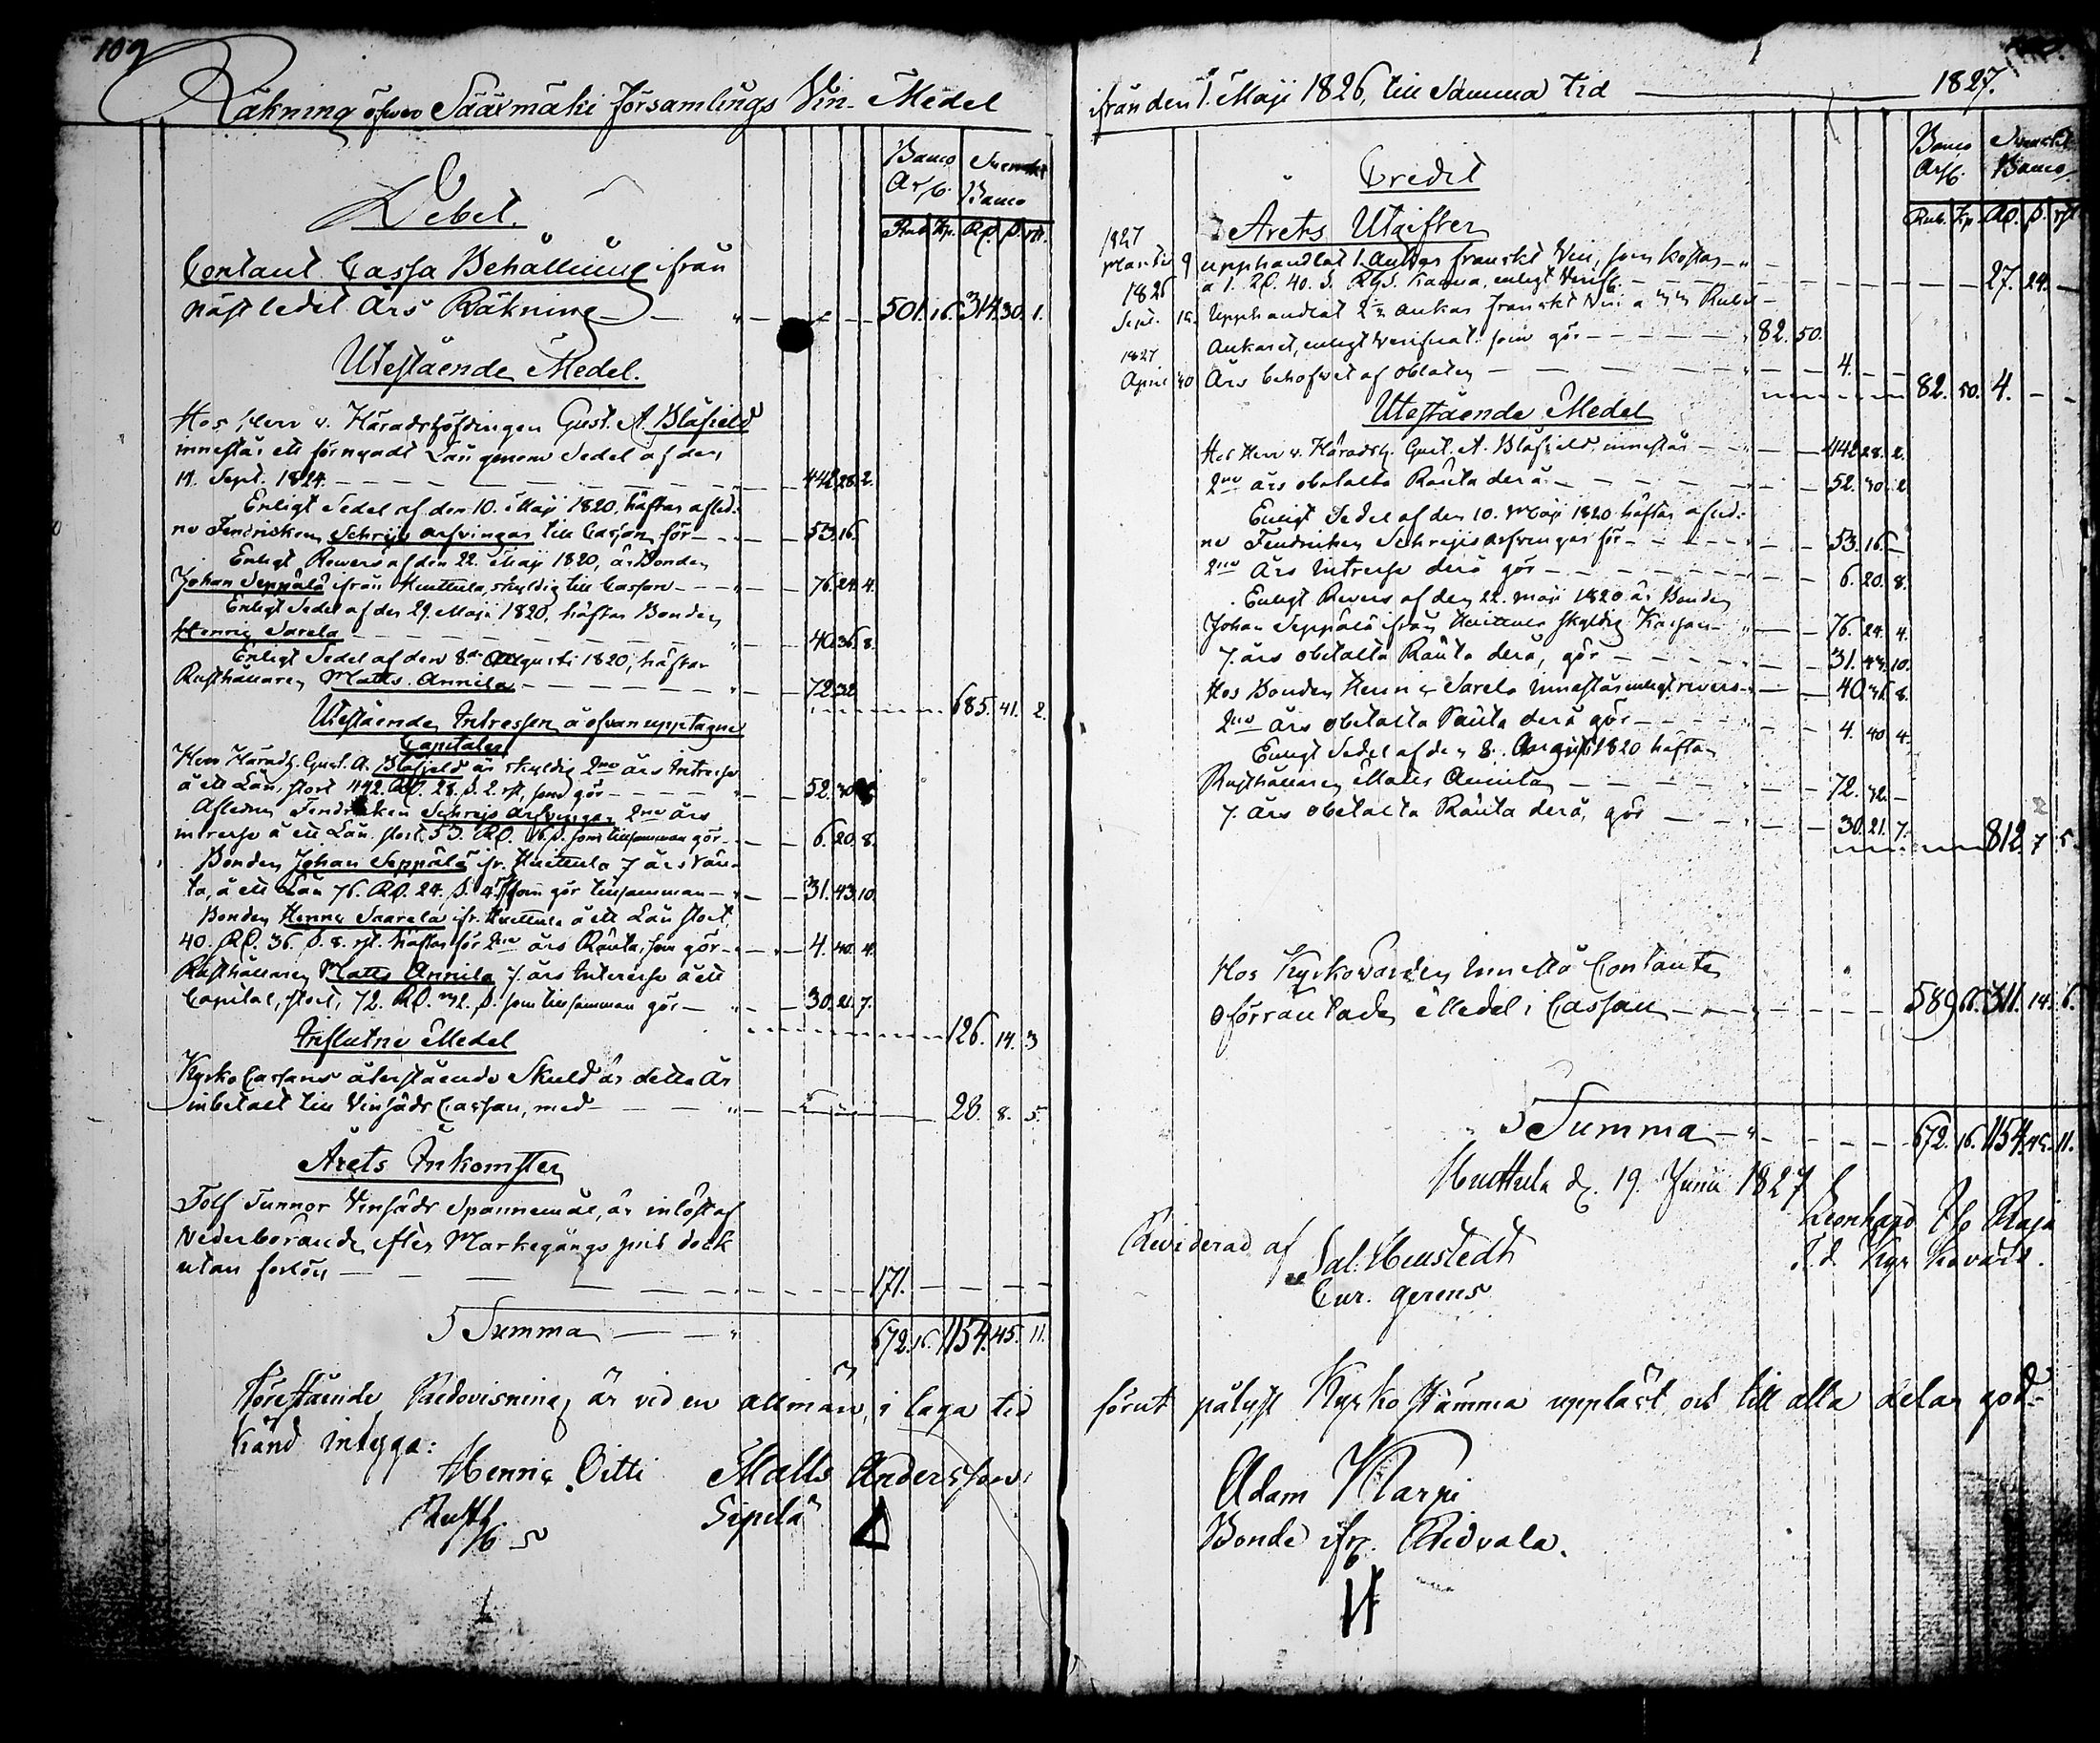 109
Räkning öfwer Sääxmäki Församlings Vin-Medel
Banco Ass. Svenskt Banco
Debet.
Rub. Kp. RD. S. rst.
Contant Cassa Behållning ifrån
näst ledet Års Räkning — 501. 16. 314. 30. 1.
Utestående Medel.
Hos Herr v. Häradshöfdingen Gust. A. Blåfield
innestår ett förnyadt Lån genom Sedel af den
11. Sept. 1824 — 442 28. 2.
Enligt Sedel af den 10. Maji 1820, häftar afled:
ne Fendricken Schreijs arfvingar till Cassan för — 53. 16.
Enligt Revers af den 22. Maji 1820, är Bonden
Johan Seppälä ifrån Huittula, skyldig till Cassan — 76. 24. 4.
Enligt Sedel af den 29. Maji 1820, häftar Bonden
Henric Sarela — 40. 36. 8.
Enligt Sedel af den 8de Augusti 1820, häftar
Rusthållaren Matts Annila — 72. 32.
685. 41. 2.
Utestående Intressen å ofvan upptagne
Capitaler
Herr Häradsh. Gust. A. Blåfield är skyldig 2ne års Intresse
å ett Lån, stort 442. RD. 28. S. 2. rst, som gör — 52. 30
Afledne Fendricken Schreijs Arfvingar 2ne års
intresse å ett Lån stort 53. RD. 16. S. som tillsamman gör — 6. 20. 8.
Bonden Johan Seppälä ifr. Huittula 7 års Rän-
ta, å ett Lån 76. RD. 24. S. 4 rst som gör tillsamman — 31. 43. 10.
Bonden Henric Saarela ifr. Huittula å ett Lån stort,
40. RD. 36. S. 8. rst. häftar för 2ne års Ränta, som gör — 4. 40. 4.
Rusthållaren Matts Annila 7. års Interesse å ett
Capital, stort, 72. RD. 32. S. som tillsamman gör — 30. 21. 7.
126. 14. 3
Influtne Medel
Kyrko Cassans återstående Skuld är detta År
inbetalt till Vinsäds Cassan, med — 28. 8. 5.
Årets Inkomster
Tolf Tunnor Vinsäds Spannemål, är inlöst af
Vederbörande efter Markegångs pris dock
utan forlön — 171.
Summa — 672. 16. 1154. 45. 11.
Förestående Redovisning är vid en allmän, i laga tid
känd intyga:
Henric Oitti Matts Andersson
Rusth. Sipilä
ifrån den 1. Maji 1826, till Samma tid — 1827.
Banco Ass. Svenskt Banco
Credit
Rub. Kp. RD. S. rst.
Årets Utgifter
1827
Martii 9 upphandlat 1. Ankar franskt Vin, som kostar —
a 1. RD. 40. S. RGS. Kanna, enligt Verif. — 27. 24.
1826
Sept. 12. Upphandlat 2½ Ankar franskt Vin a 33 Rubel —
Ankaret, enligt Verificat. som gör — 82. 50.
1827
April 30 Års behofvet af oblater — 4.
82. 50. 4.
Utestående Medel
Hos Herr v. Häradsh. Gust. A. Blåfield, innestår — 442 28. 2.
2ne års obetalta Ränta derå — 52. 30. 2
Enligt Sedel af den 10. Maji 1820 häftar afled:
ne Fendricken Schreijs arfvingar för — 53. 16.
2ne Års Intresse derå gör — 6. 20. 8.
Enligt Revers af den 22. Maji 1820 är Bonden
Johan Seppälä ifrån Huittula skyldig Kassan — 76. 24. 4.
7. års obetalta Ränta derå, gör — 31. 43. 10.
Hos Bonden Henric Sarela innestår enligt revers — 40 36. 8.
2ne års obetalta Ränta derå gör — 4. 40 4.
Enligt Sedel af den 8. Augusti 1820 häftar
Rusthållaren Matts Annila — 72. 32.
7. års obetalta Ränta derå, gör — 30. 21. 7.
812. 7 5.
Hos Kyrkovärden innestå Contante
oförräntade Medel i Cassan — 589 66. 311. 14. 6.
Summa — 672. 16. 1154. 45. 11.
Huittula d. 19. Junii 1827
Leonhard
Reviderad af
Sal. Heustedt
Cur. gerens
förut pålyst Kyrko Stämma uppläst och till alla delar god-
Adam Karpi
Bonde ifr. Ridvala.